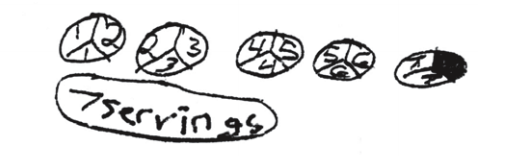 1 2 1 2 3 3 4 5 4 5 6 6 7 7
7 servings